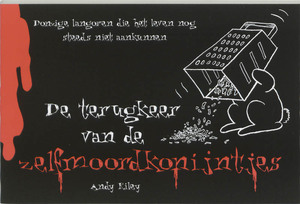 Donzige langoren die het leven nog
steeds niet aankunnen
De terugkeer
van de
zelfmoordkonijntjes
Andy Riley